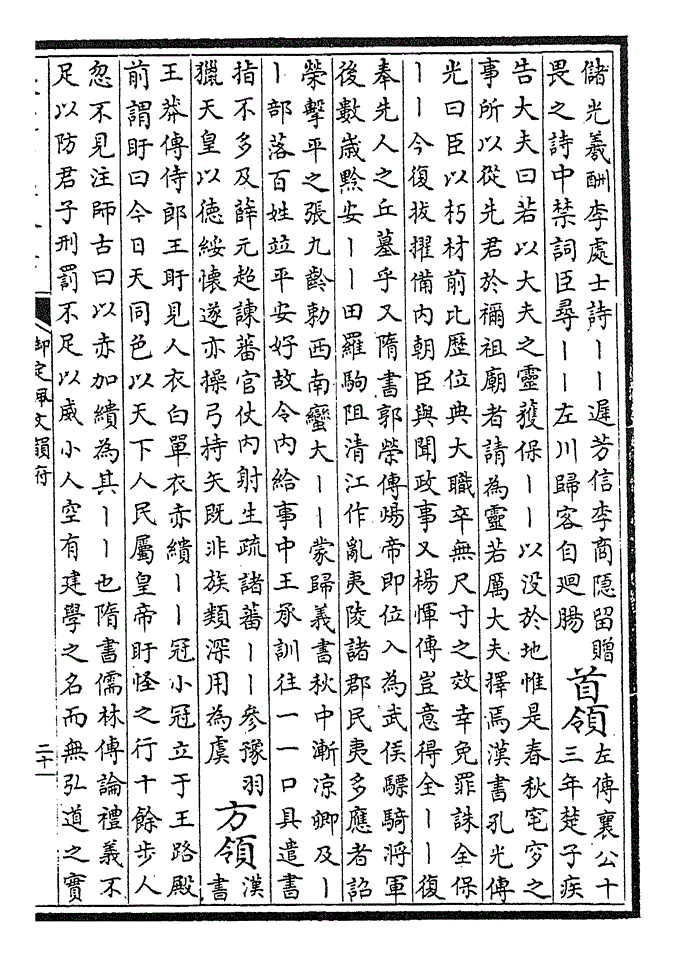 儲光羲酬李處士詩丨丨遲芳信李商隱留贈
畏之詩中禁詞臣尋丨丨左川歸客自迴腸
首領
左傳襄公十
三年楚子疾
告大夫曰若以大夫之靈獲保丨丨以没於地惟是春秋窀穸之
事所以從先君於禰祖廟者請為靈若厲大夫擇焉漢書孔光傳
光曰臣以朽材前比歴位典大職卒無尺寸之效幸免罪誅全保
丨丨今復拔擢備内朝臣與聞政事又楊惲傳豈意得全丨丨復
奉先人之丘墓乎又隋書郭榮傳煬帝即位入為武侯驃騎將軍
後數歲黔安丨丨田羅駒阻清江作亂夷陵諸郡民夷多應者詔
榮擊平之張九齡勅西南蠻大丨丨蒙歸義書秋中漸凉卿及丨
丨部落百姓竝平安好故令内給事中王承訓往一一口具遣書
指不多及薛元超諫蕃官仗内射生疏諸蕃丨丨參豫羽
獵天皇以德綏懷遂亦操弓持矢既非族類深用為虞
方領
漢
書
王莽傳侍郎王盱見人衣白單衣赤繢丨丨冠小冠立于王路殿
前謂盱曰今日天同色以天下人民屬皇帝盱怪之行十餘步人
忽不見注師古曰以赤加繢為其丨丨也隋書儒林傳論禮義不
足以防君子刑罰不足以威小人空有建學之名而無弘道之實
御定佩文韻府
二十一